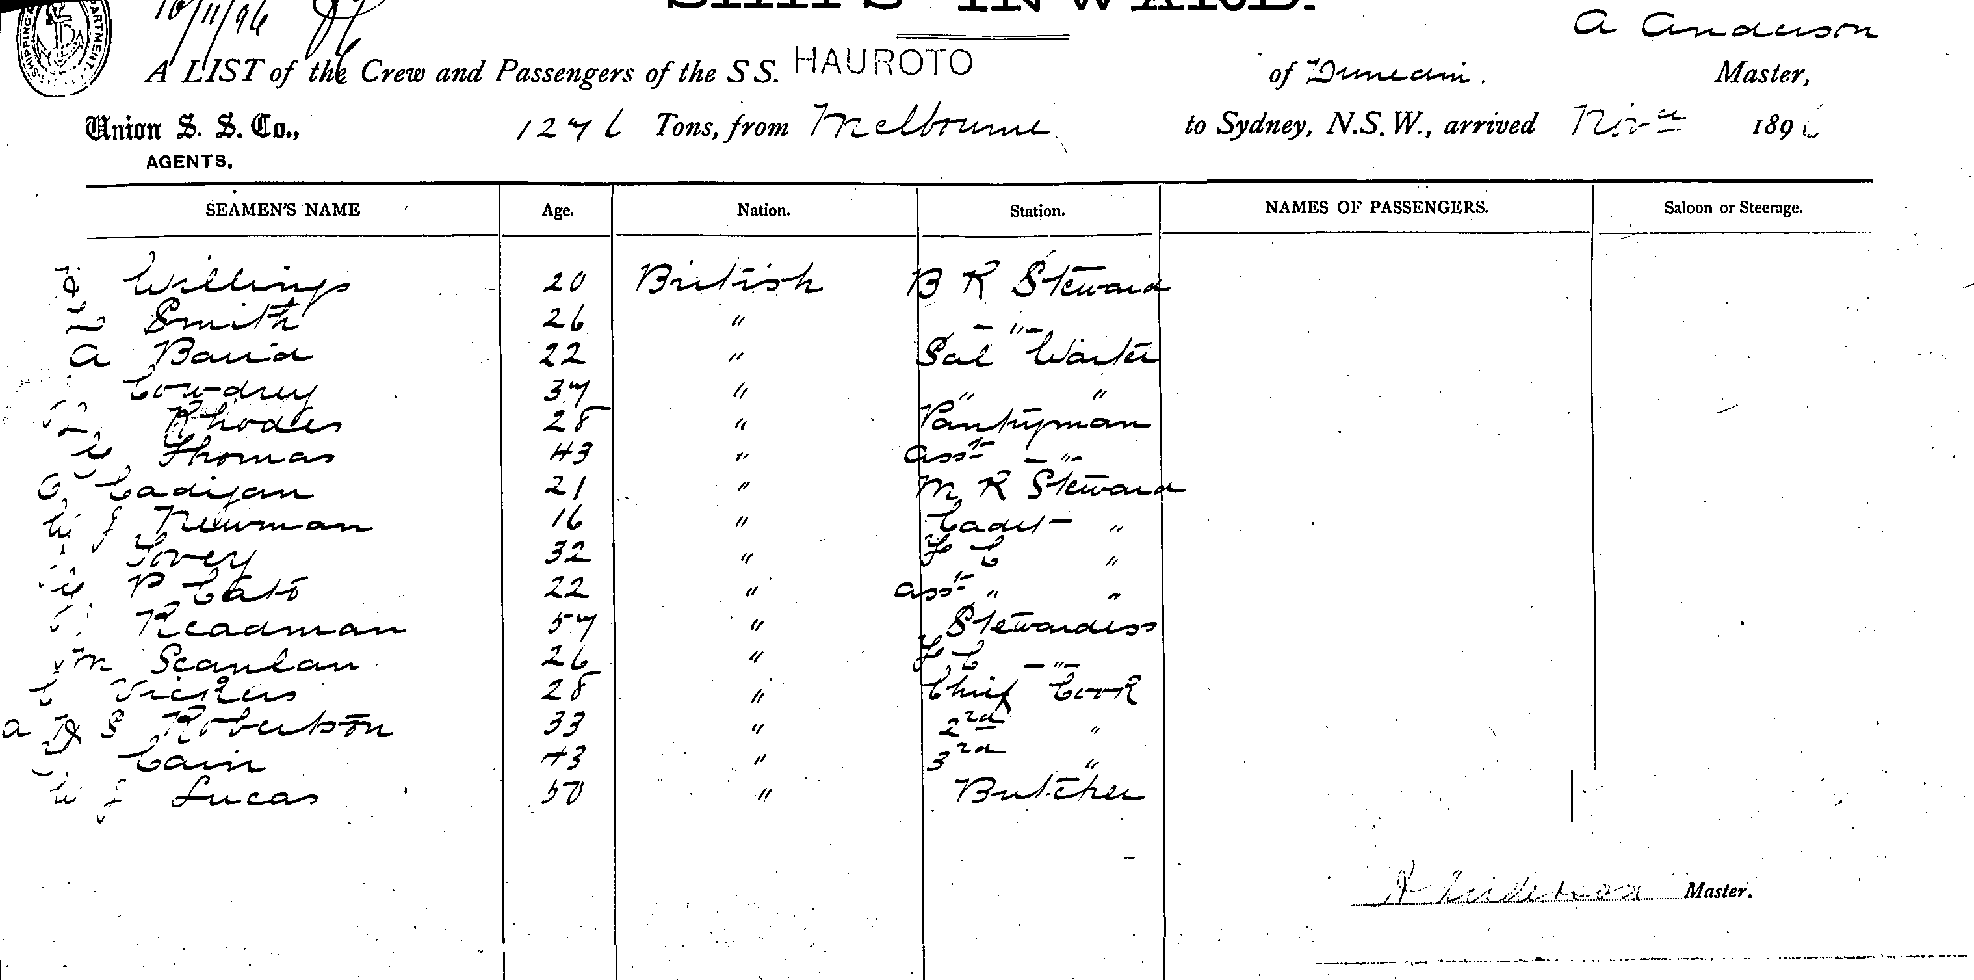 16/11/96
SHIPS INWARD.
A Anderson
A LIST of the Crew and Passengers of the SS. HAUROTO of Dunedin. Master,
Union S. S. Co., 1276 Tons, from Melbourne to Sydney, N.S.W., arrived Nov 1896
AGENTS.
SEAMEN'S NAME Age. Nation. Station. NAMES OF PASSENGERS. Saloon or Steerage.
Willings 20 British B R Steward
Smith 26 " - " -
A Baird 22 " Sal Waiter
Cowdrey 37 " " "
Rhodes 28 " Pantryman
Thomas 43 " asst - " -
Cadigan 21 " M R Steward
W J Newman 16 " Cadet "
Tovey 32 " F C "
P Cato 22 " asst " "
Readman 57 " Stewardess
M Scanlan 26 " F C - " -
Vickers 28 " Chief Cook
A S Robertson 33 " 2nd "
Cain 43 " 3rd "
W J Lucas 50 " Butcher
A Anderson Master.